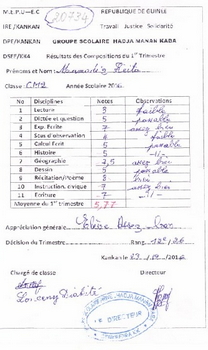 M.E.P.U-E.C REPUBLIQUE DE GUINEE
20734
IRE/KANKAN Travail Justice Solidarité
DPE/KANKAN GROUPE SCOLAIRE HADJA MANAN KABA
DSEE/KKA Résultats des Compositions du 1er Trimestre
Prénoms et Nom:
Classe: CM2 Année Scolaire
No Disciplines Notes Observations
1 Lecture 3 faible
2 Dictée et question 5 passable
3 Exp. Ecrite 7 assez bien
4 Scien. d'observation 4 faible
5 Calcul Ecrit 5 passable
6 Histoire 5 -//-
7 Géographie 7,5 assez bien
8 Dessin 5 passable
9 Récitation/Poème 8 bien
10 Instruction. civique 7 assez bien
11 Ecriture 7 -//-
Moyenne du 1er trimestre 5,77
Appréciation générale Elève Assez bien
Décision du Trimestre Rang
Kankan le
Chargé de classe Directeur